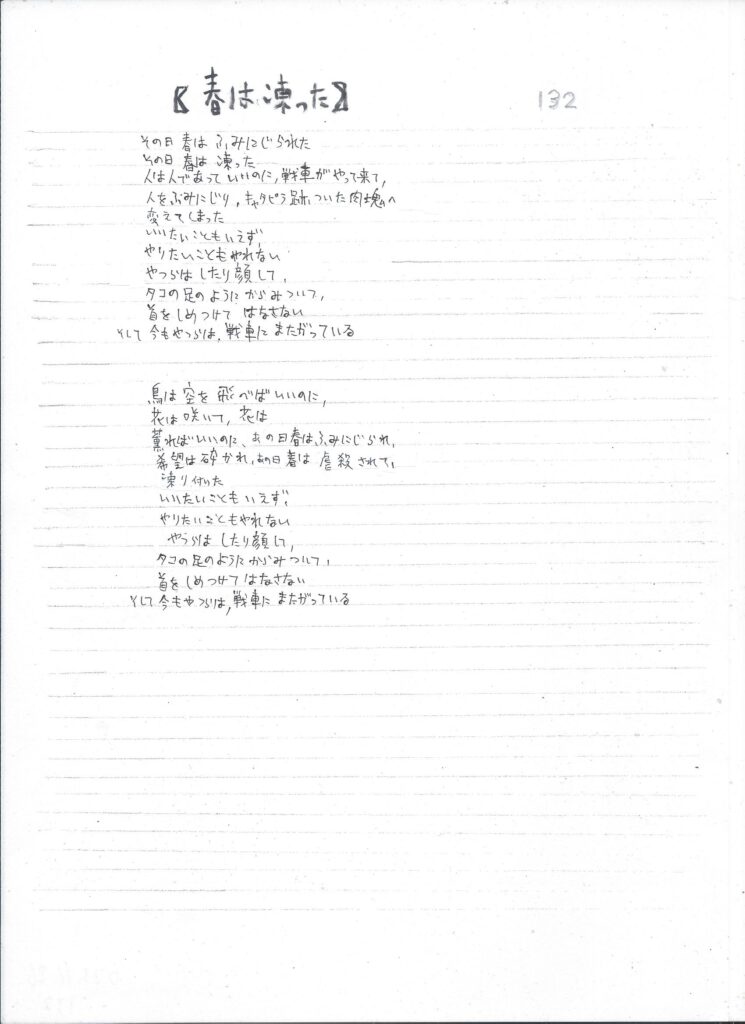 〖春は凍った〗
132
その日 春は ふみにじられた
その日 春は 凍った
人は人であって いいのに、戦車がやって来て、
人をふみにじり、キャタピラ跡ついた肉塊へ
変えてしまった
いいたいこともいえず、
やりたいこともやれない
やつらは したり顔して、
タコの足のように からみついて、
首をしめつけて はなさない
そして 今もやつらは、戦車に またがっている
鳥は 空を 飛べばいいのに、
花は 咲いて、花は
薫ればいいのに、あの日春は、ふみにじられ、
希望は砕かれ、あの日 春は 虐殺されて、
凍り付いた
いいたいこともいえず、
やりたいこともやれない
やつらは したり顔して、
タコの足のように からみついて、
首をしめつけて はなさない
そして 今もやつらは、戦車に またがっている